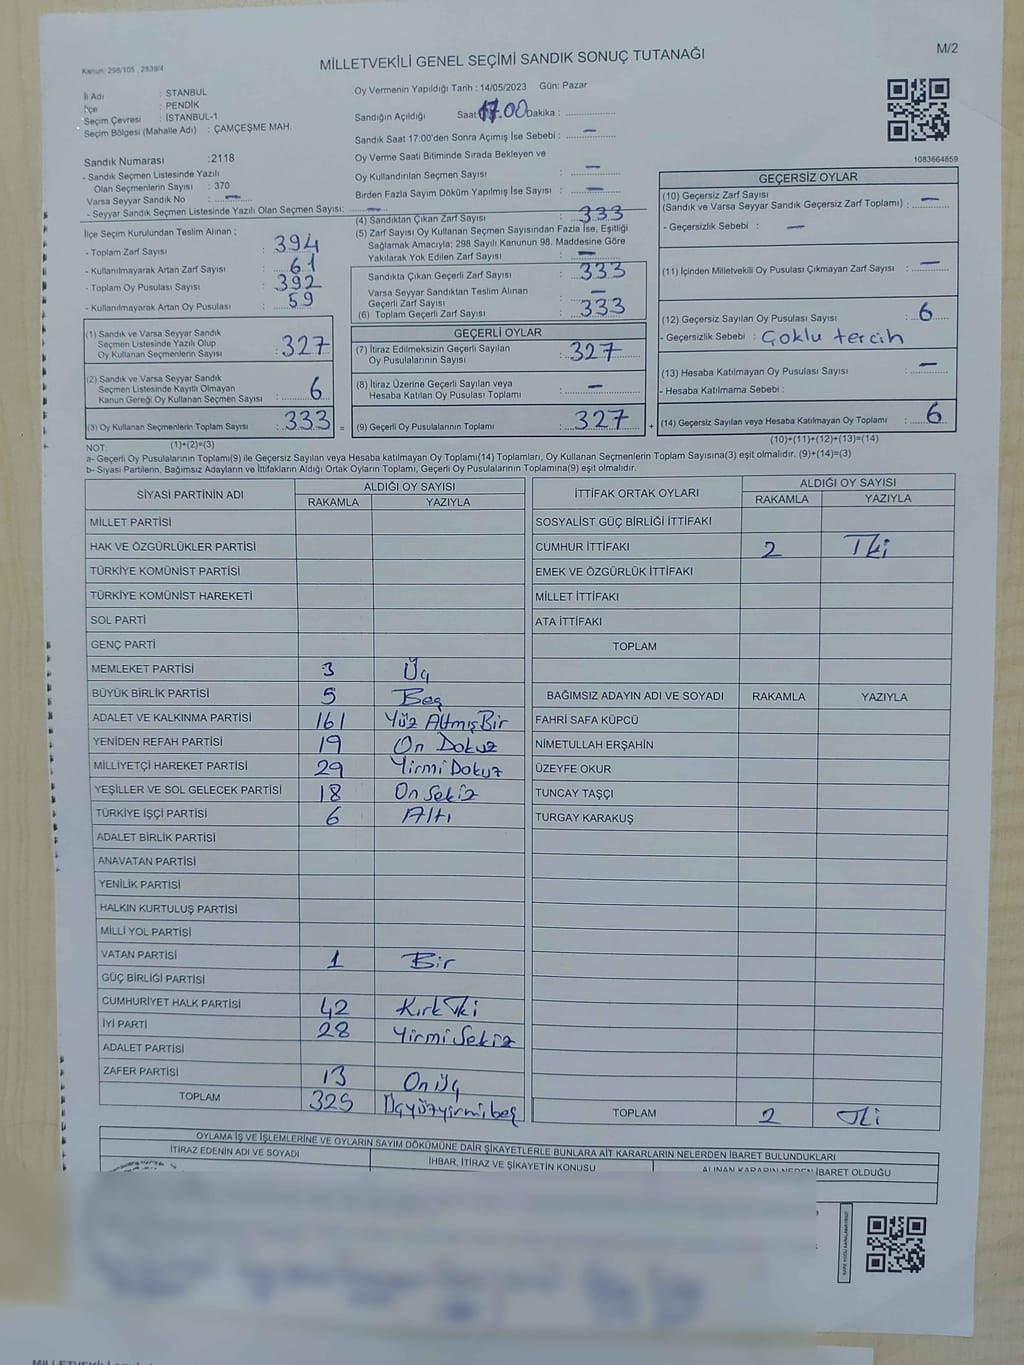 Kanun: 298/105 , 2839/4
MİLLETVEKİLİ GENEL SEÇİMİ SANDIK SONUÇ TUTANAĞI
M/2
İl Adı : İSTANBUL
İlçe : PENDİK
Seçim Çevresi : İSTANBUL-1
Seçim Bölgesi (Mahalle Adı) : ÇAMÇEŞME MAH.
Sandık Numarası :2118
- Sandık Seçmen Listesinde Yazılı
Olan Seçmenlerin Sayısı : 370
Varsa Seyyar Sandık No : —
- Seyyar Sandık Seçmen Listesinde Yazılı Olan Seçmen Sayısı: —
İlçe Seçim Kurulundan Teslim Alınan ;
- Toplam Zarf Sayısı : 394
- Kullanılmayarak Artan Zarf Sayısı : 61
- Toplam Oy Pusulası Sayısı : 392
- Kullanılmayarak Artan Oy Pusulası : 59
(1) Sandık ve Varsa Seyyar Sandık
Seçmen Listesinde Yazılı Olup
Oy Kullanan Seçmenlerin Sayısı : 327
(2) Sandık ve Varsa Seyyar Sandık
Seçmen Listesinde Kayıtlı Olmayan
Kanun Gereği Oy Kullanan Seçmen Sayısı : 6
(3) Oy Kullanan Seçmenlerin Toplam Sayısı : 333 =
(1)+(2)=(3)
Oy Vermenin Yapıldığı Tarih : 14/05/2023 Gün: Pazar
Sandığın Açıldığı Saat 17.00 Dakika :
Sandık Saat 17:00'den Sonra Açımış İse Sebebi : —
Oy Verme Saati Bitiminde Sırada Bekleyen ve
Oy Kullandırılan Seçmen Sayısı : —
Birden Fazla Sayım Döküm Yapılmış İse Sayısı : —
(4) Sandıktan Çıkan Zarf Sayısı : 333
(5) Zarf Sayısı Oy Kullanan Seçmen Sayısından Fazla İse, Eşitliği
Sağlamak Amacıyla; 298 Sayılı Kanunun 98. Maddesine Göre
Yakılarak Yok Edilen Zarf Sayısı : —
Sandıkta Çıkan Geçerli Zarf Sayısı : 333
Varsa Seyyar Sandıktan Teslim Alınan
Geçerli Zarf Sayısı : —
(6) Toplam Geçerli Zarf Sayısı : 333
GEÇERLİ OYLAR
(7) İtiraz Edilmeksizin Geçerli Sayılan
Oy Pusulalarının Sayısı : 327
(8) İtiraz Üzerine Geçerli Sayılan veya
Hesaba Katılan Oy Pusulası Toplamı : —
(9) Geçerli Oy Pusulalarının Toplamı : 327 +
1083664859
GEÇERSİZ OYLAR
(10) Geçersiz Zarf Sayısı
(Sandık ve Varsa Seyyar Sandık Geçersiz Zarf Toplamı) : —
- Geçersizlik Sebebi : —
(11) İçinden Milletvekili Oy Pusulası Çıkmayan Zarf Sayısı : —
(12) Geçersiz Sayılan Oy Pusulası Sayısı : 6
- Geçersizlik Sebebi : Çoklu tercih
(13) Hesaba Katılmayan Oy Pusulası Sayısı : —
- Hesaba Katılmama Sebebi :
(14) Geçersiz Sayılan veya Hesaba Katılmayan Oy Toplamı : 6
(10)+(11)+(12)+(13)=(14)
NOT:
a- Geçerli Oy Pusulalarının Toplamı(9) ile Geçersiz Sayılan veya Hesaba Katılmayan Oy Toplamı(14) Toplamları, Oy Kullanan Seçmenlerin Toplam Sayısına(3) eşit olmalıdır. (9)+(14)=(3)
b- Siyasi Partilerin, Bağımsız Adayların ve İttifakların Aldığı Ortak Oyların Toplamı, Geçerli Oy Pusulalarının Toplamına(9) eşit olmalıdır.
SİYASİ PARTİNİN ADI ALDIĞI OY SAYISI
RAKAMLA YAZIYLA
MİLLET PARTİSİ
HAK VE ÖZGÜRLÜKLER PARTİSİ
TÜRKİYE KOMÜNİST PARTİSİ
TÜRKİYE KOMÜNİST HAREKETİ
SOL PARTİ
GENÇ PARTİ
MEMLEKET PARTİSİ 3 Üç
BÜYÜK BİRLİK PARTİSİ 5 Beş
ADALET VE KALKINMA PARTİSİ 161 Yüz Altmış Bir
YENİDEN REFAH PARTİSİ 19 On Dokuz
MİLLİYETÇİ HAREKET PARTİSİ 29 Yirmi Dokuz
YEŞİLLER VE SOL GELECEK PARTİSİ 18 On Sekiz
TÜRKİYE İŞÇİ PARTİSİ 6 Altı
ADALET BİRLİK PARTİSİ
ANAVATAN PARTİSİ
YENİLİK PARTİSİ
HALKIN KURTULUŞ PARTİSİ
MİLLİ YOL PARTİSİ
VATAN PARTİSİ 1 Bir
GÜÇ BİRLİĞİ PARTİSİ
CUMHURİYET HALK PARTİSİ 42 Kırk İki
İYİ PARTİ 28 Yirmi Sekiz
ADALET PARTİSİ
ZAFER PARTİSİ 13 On üç
TOPLAM 325 Üçyüzyirmibeş
İTTİFAK ORTAK OYLARI ALDIĞI OY SAYISI
RAKAMLA YAZIYLA
SOSYALİST GÜÇ BİRLİĞİ İTTİFAKI
CUMHUR İTTİFAKI 2 İki
EMEK VE ÖZGÜRLÜK İTTİFAKI
MİLLET İTTİFAKI
ATA İTTİFAKI
TOPLAM
BAĞIMSIZ ADAYIN ADI VE SOYADI RAKAMLA YAZIYLA
FAHRİ SAFA KÜPCÜ
NİMETULLAH ERŞAHİN
ÜZEYFE OKUR
TUNCAY TAŞÇI
TURGAY KARAKUŞ
TOPLAM 2 İki
OYLAMA İŞ VE İŞLEMLERİNE VE OYLARIN SAYIM DÖKÜMÜNE DAİR ŞİKAYETLERLE BUNLARA AİT KARARLARIN NELERDEN İBARET BULUNDUKLARI
İTİRAZ EDENİN ADI VE SOYADI İHBAR, İTİRAZ VE ŞİKAYETİN KONUSU ALINAN KARARIN NEDEN İBARET OLDUĞU